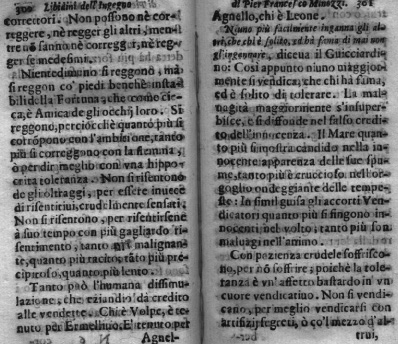 300 Libidini dell'Ingegno
correttori. Non possono nè cor-
reggere, nè regger gli altri, men-
tre non sanno nè corregger, nè reg-
ger se medesimi.
Niente dimeno si reggono, mà
si reggon co' piedi benchè insta-
bili della Fortuna; che come cie-
ca, è Amica degl'occhij loro. Si
reggono, perciòcchè quanto più si
corrõpono con l'ambicione, tanto
più si correggono con la flemma,
ò per dir meglio con vna hippo-
crita toleranza. Non si risentono
degl'oltraggi, per essere inuece
di risentiti, crudelmente sensati,
Non si risentono, per risentirsene
à suo tempo con più gagliardo ri-
sentimento, tanto più malignan-
te, quanto più tacito; tãto più pre-
cipitoso, quanto più lento.
Tanto può l'humana dissimu-
lazione, che eziandio dà credito
alle vendette. Chi è Volpe, è te-
nuto per Ermellino. E' tenuto per
Agnel-
di Pier Francesco Minozzi. 301
Agnello, chi è Leone.
Niuno più facilmente inganna gli al-
tri, che chi è solito, ed hà fama di mai non
gl'ingannare, diceua il Guicciardi-
no: Così appunto niuno maggior-
mente si vendica, che chi hà fama,
ed è solito di tolerare. La mal-
nagità maggiormente s'insuper-
bisce, e si diffonde nel falso credito
dell'innocenza. Il Mare quanto
più si mostra candido nella in-
nocente apparenza delle sue spu-
me, tanto più è cruccioso nell'or-
goglio ondeggiante delle tempe-
ste: In simil guisa gli accorti Ven-
dicatori quanto più si fingono in-
nocenti nel volto; tanto più son
maluagi nell'animo.
Con pezienza crudele soffrisco-
no, per nõ soffrire; poichè la tole-
tanza è vn'affetto bastardo in vn
cuore vendicatiuo. Non si vendi-
cano, per meglio vendicarsi con
artifizij segreti, ò co'l mezzo d'al-
trui,